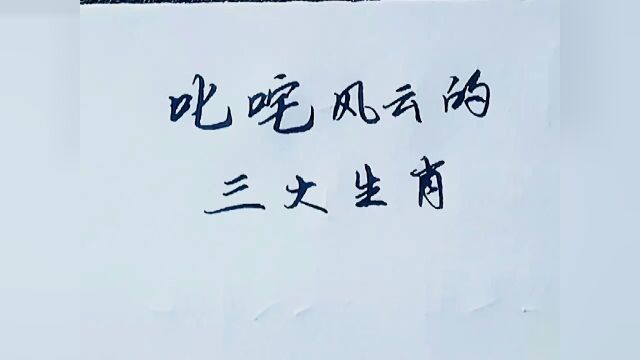 叱咤风云的
三大生肖